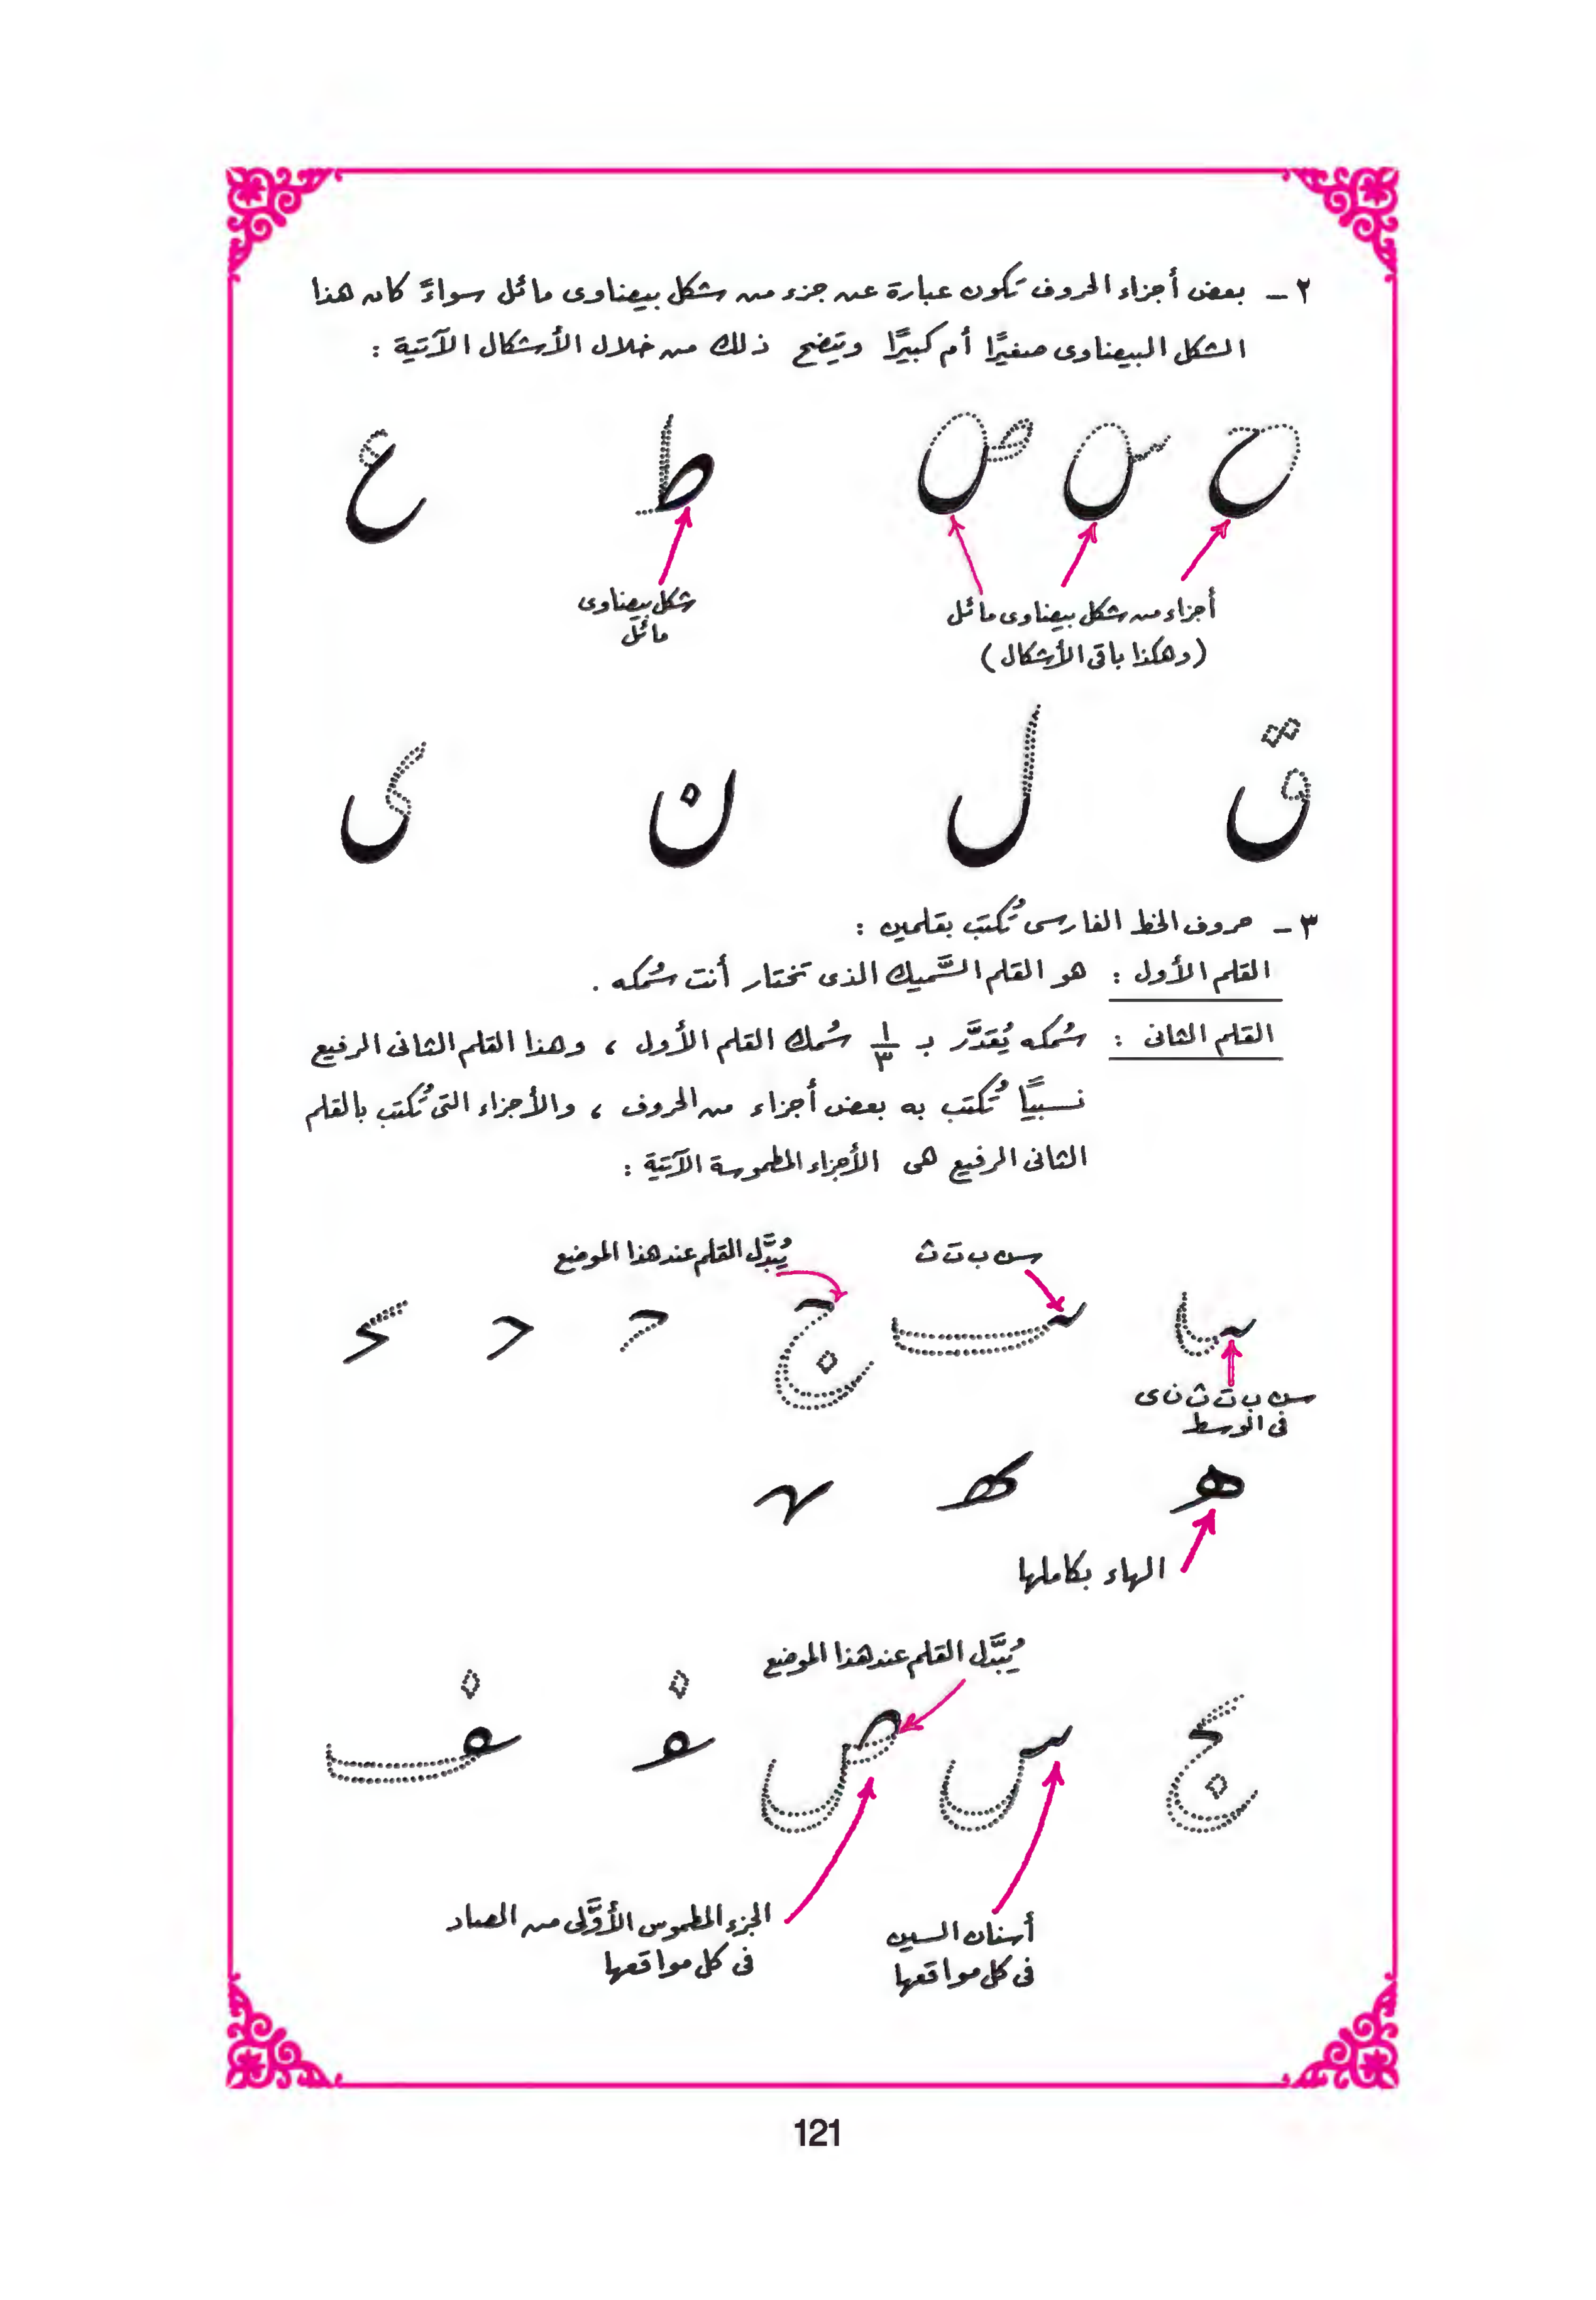 ٢ ـ بعض أجزاء الحروف تكون عبارة عن جزء من شكل بيضاوى مائل سواءً كان هذا
الشكل البيضاوى صغيرًا أم كبيرًا ويتضح ذلك من خلال الأشكال الآتية :
ح س ص ط ع
أجزاء من شكل بيضاوى مائل
(وهكذا باقى الأشكال)
شكل بيضاوى
مائل
ق ل ن ى
٣ ـ حروف الخط الفارسى تُكتب بقلمين :
القلم الأول : هو القلم السَّميك الذى تختار أنت سُمكه .
القلم الثانى : سُمكه يُقدَّر بـ ١/٣ سُمك القلم الأول ، وهذا القلم الثانى الرفيع
نسبيًا تُكتب به بعض أجزاء من الحروف ، والأجزاء التى تُكتب بالقلم
الثانى الرفيع هى الأجزاء المطموسة الآتية :
من ب ت ث
يُبدَّل القلم عند هذا الموضع
من ب ت ث ن ى
فى الوسط
الهاء بكاملها
يُبدَّل القلم عند هذا الموضع
أسنان السين
فى كل مواقعها
الجزء المطموس الأوَّلى من الصاد
فى كل مواقعها
121